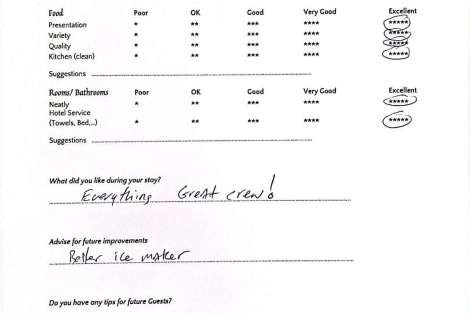 Food Poor OK Good Very Good Excellent
Presentation * ** *** **** *****
Variety * ** *** **** *****
Quality * ** *** **** *****
Kitchen (clean) * ** *** **** *****
Suggestions
Rooms/ Bathrooms Poor OK Good Very Good Excellent
Neatly * ** *** **** *****
Hotel Service
(Towels, Bed,..) * ** *** **** *****
Suggestions
What did you like during your stay?
Everything Great crew!
Advise for future improvements
Better ice maker
Do you have any tips for future Guests?